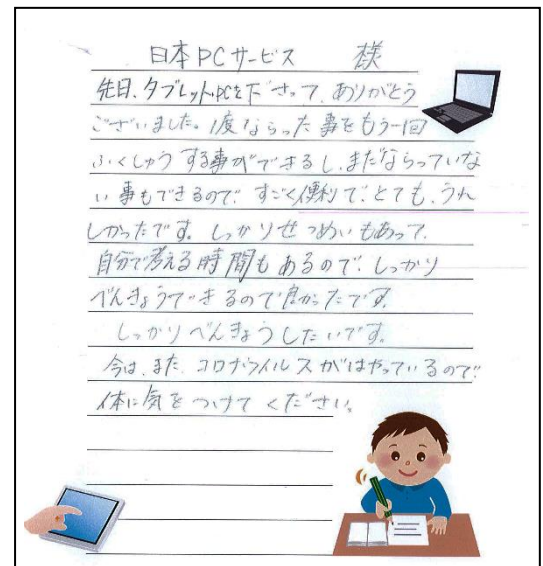 日本PCサービス 様
先日、タブレットPCを下さって、ありがとう
ございました。1度ならった事をもう一回
ふくしゅうする事ができるし、まだならっていな
い事もできるので、すごく便利で、とても、うれ
しかったです。しっかりせつめいもあって、
自分で考える時間もあるので、しっかり
べんきょうできるので良かったです。
しっかりべんきょうしたいです。
今は、また、コロナウイルスがはやっているので
体に気をつけてください。